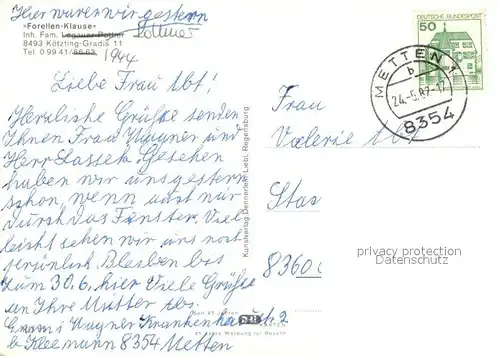 Hier waren wir gestern
»Forellen-Klause«
Inh. Fam. Legauer-Rottler Rottner
8493 Kötzting-Gradis 11
Tel. 0 99 41/86 63 1944
Liebe Frau Abt!
Herzliche Grüße senden
Ihnen Frau Wagner und
Herr Lassek. Gesehen
haben wir uns gestern
schon, wenn auch nur
durch das Fenster. Viel
leicht sehen wir uns noch
persönlich. Bleiben bis
zum 30.6. hier Viele Grüße
an Ihre Mutter
Wagner Krankenhausstr. 2
b. Kleemann 8354 Metten
Kunstverlag Dennerlein Liebl, Regensburg
45 Jahre Werbung für Bayern
50
DEUTSCHE BUNDESPOST
METTEN
b
24.-6.87-17
8354
Frau
Valerie Abt
8360
privacy protection
Datenschutz